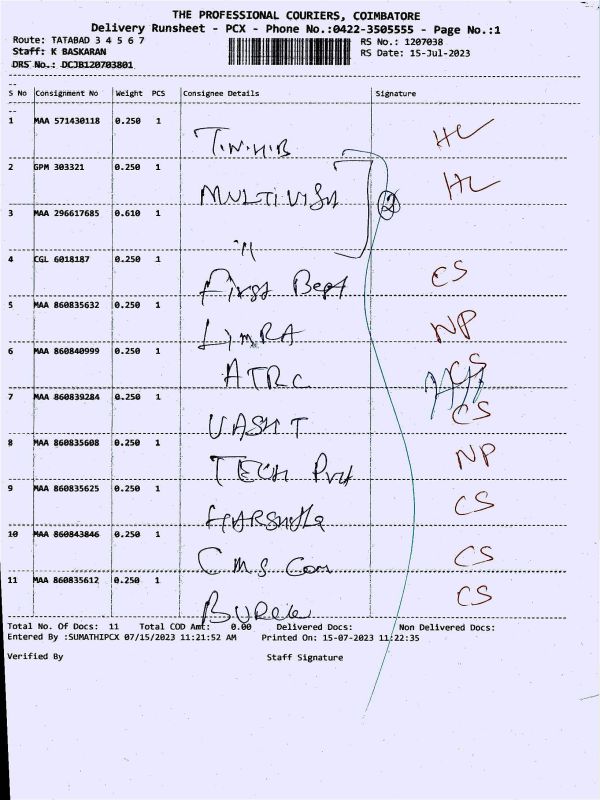 THE PROFESSIONAL COURIERS, COIMBATORE
Delivery Runsheet - PCX - Phone No.:0422-3505555 - Page No.:1
Route: TATABAD 3 4 5 6 7 RS No.: 1207038
Staff: K BASKARAN RS Date: 15-Jul-2023
DRS No.: DCJB120703801
S No Consignment No Weight PCS Consignee Details Signature
1 MAA 571430118 0.250 1 HC
2 GPM 303321 0.250 1 HC
3 MAA 296617685 0.610 1 " 2
4 CGL 6018187 0.250 1 First CS
5 MAA 860835632 0.250 1 LIMRA NP
6 MAA 860840999 0.250 1 ATRC CS
7 MAA 860839284 0.250 1 VASHT CS
8 MAA 860835608 0.250 1 TECH NP
9 MAA 860835625 0.250 1 CS
10 MAA 860843846 0.250 1 CMS Com CS
11 MAA 860835612 0.250 1 CS
Total No. Of Docs: 11 Total COD Amt: 0.00 Delivered Docs: Non Delivered Docs:
Entered By :SUMATHIPCX 07/15/2023 11:21:52 AM Printed On: 15-07-2023 11:22:35
Verified By Staff Signature